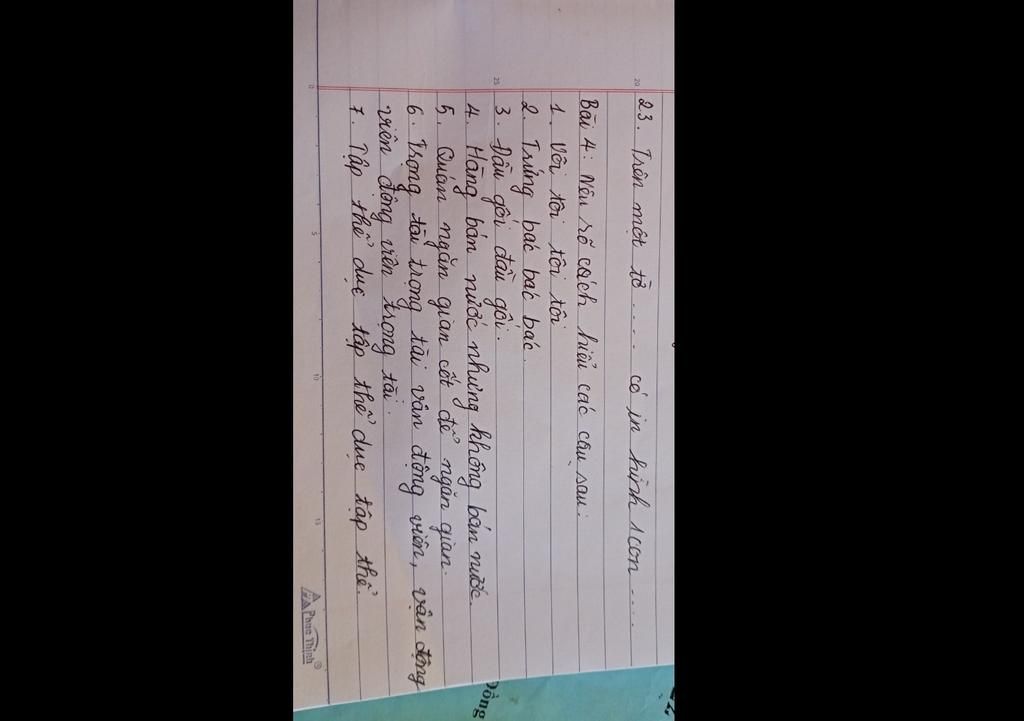 23. Trên một tờ ..... có in hình 1 con ....
Bài 4: Nêu rõ cách hiểu các câu sau:
1. Vôi tôi tôi tôi
2. Trứng bác bác bác.
3. Đầu gối đầu gối.
4. Hàng bán nước nhưng không bán nước.
5. Quán ngăn gian cốt để ngăn gian.
6. Trọng tài trọng tài vận động viên, vận động
viên động viên trọng tài.
7. Tập thể dục tập thể dục tập thể.
Phúc Thịnh
Đồng